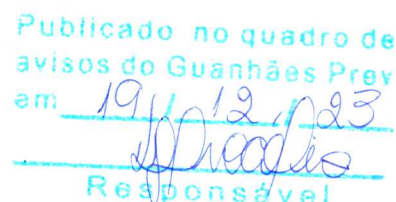 Publicado no quadro de
avisos do Guanhães Prev
em 19 / 12 / 23
Responsável